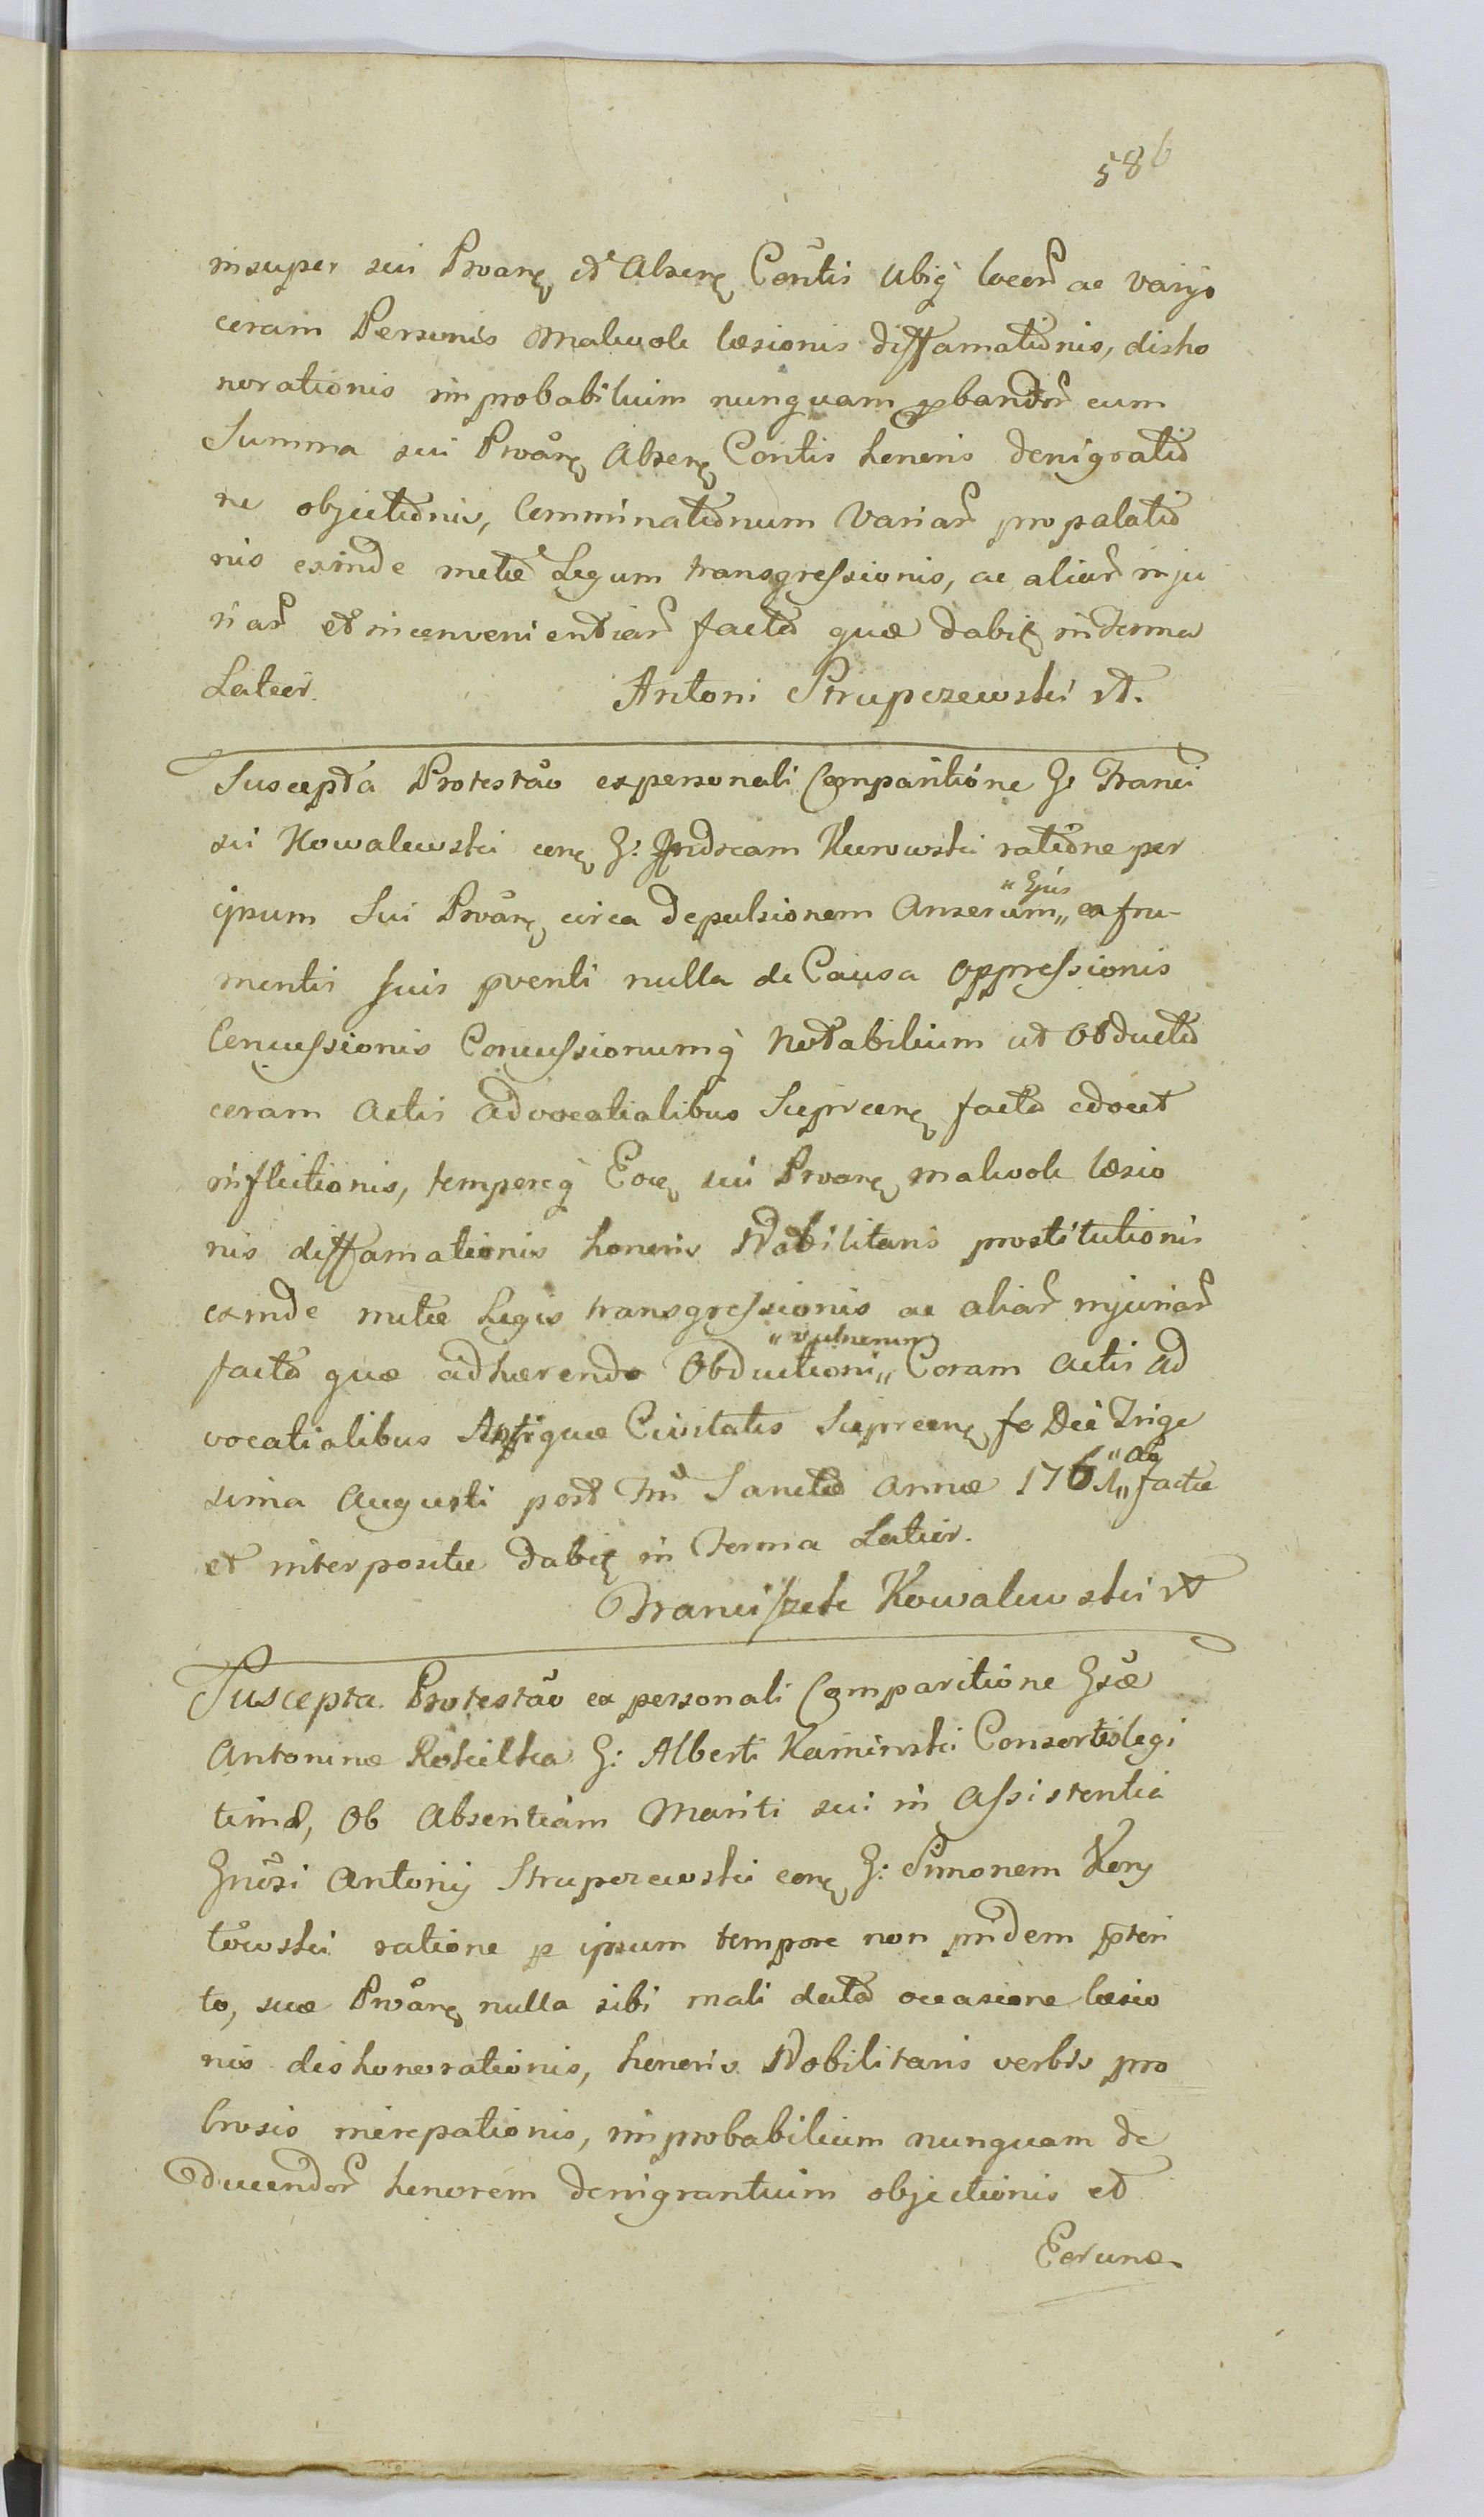 586
insuper sui Proãnę et Absenę Contis ubiq̀ locoȓ ac varijs
coram Personis malevole læsionis diffamationis, disho
norationis improbabilium nunquam ꝓbandoȓ cum
Summa sui Proãnę Absenę Contis honoris denigratio
ne objectionis, Comminationum variaȓ propalatio
nis exinde metæ Legum transgressionis, ac aliaȓ inju
riaȓ et inconvenientiaȓ facta quæ dabitꝫ in Terma
Latior. Antoni Strupczewski rt.
Suscepta Protestão ex personali Comparitióne G. Franci
sci Kowalewski conę G: Andream Kurowski ratióne per
ipsum Sui Proãnę circa depulsionem Anserum,, "Ejus ex fru-
mentis suis pventi nulla de Causa oppressionis
Concussionis Concussionumq̀ notabilium ut Obductio
coram Actis Advocatialibus Sieprcenę facta edocet
inflictionis, temporeq̀ Eoę sui Proãnę malevole læsio
nis diffamationis honoris Nobilitaris prostitutionis
exinde metæ Legis transgressionis ac aliaȓ injuriaȓ
facta quæ adhærendo Obductioni,, "vulnerum Coram Actis Ad
vocatialibus Antiquæ Civitatis Sieprcenę fa Dei Trige
sima Augusti post Fm̃ Sanctæ Annæ 1761,, "ac factæ
et interpositæ dabitꝫ in Terma Latior.
Franciszek Kowalewski rt
Suscepta Protestão ex personali Comparitióne Gsæ
Antoninæ Rokielka G: Alberti Kaminski Consortis legi
timæ, Ob Absentiam Mariti sui in Assistentia
Gnõsi Antonij Strupczewski conę G: Simonem Kory
towski ratione ꝑ ipsum tempore non pridem p̃teri
to, suæ Proãnę nulla sibi mali data occasione læsio
nis dishonorationis, honoris Nobilitaris verbis pro
brosis increpationis, improbabilium nunquam de
ducendoȓ honorem denigrantium objectionis et
Eorunæ